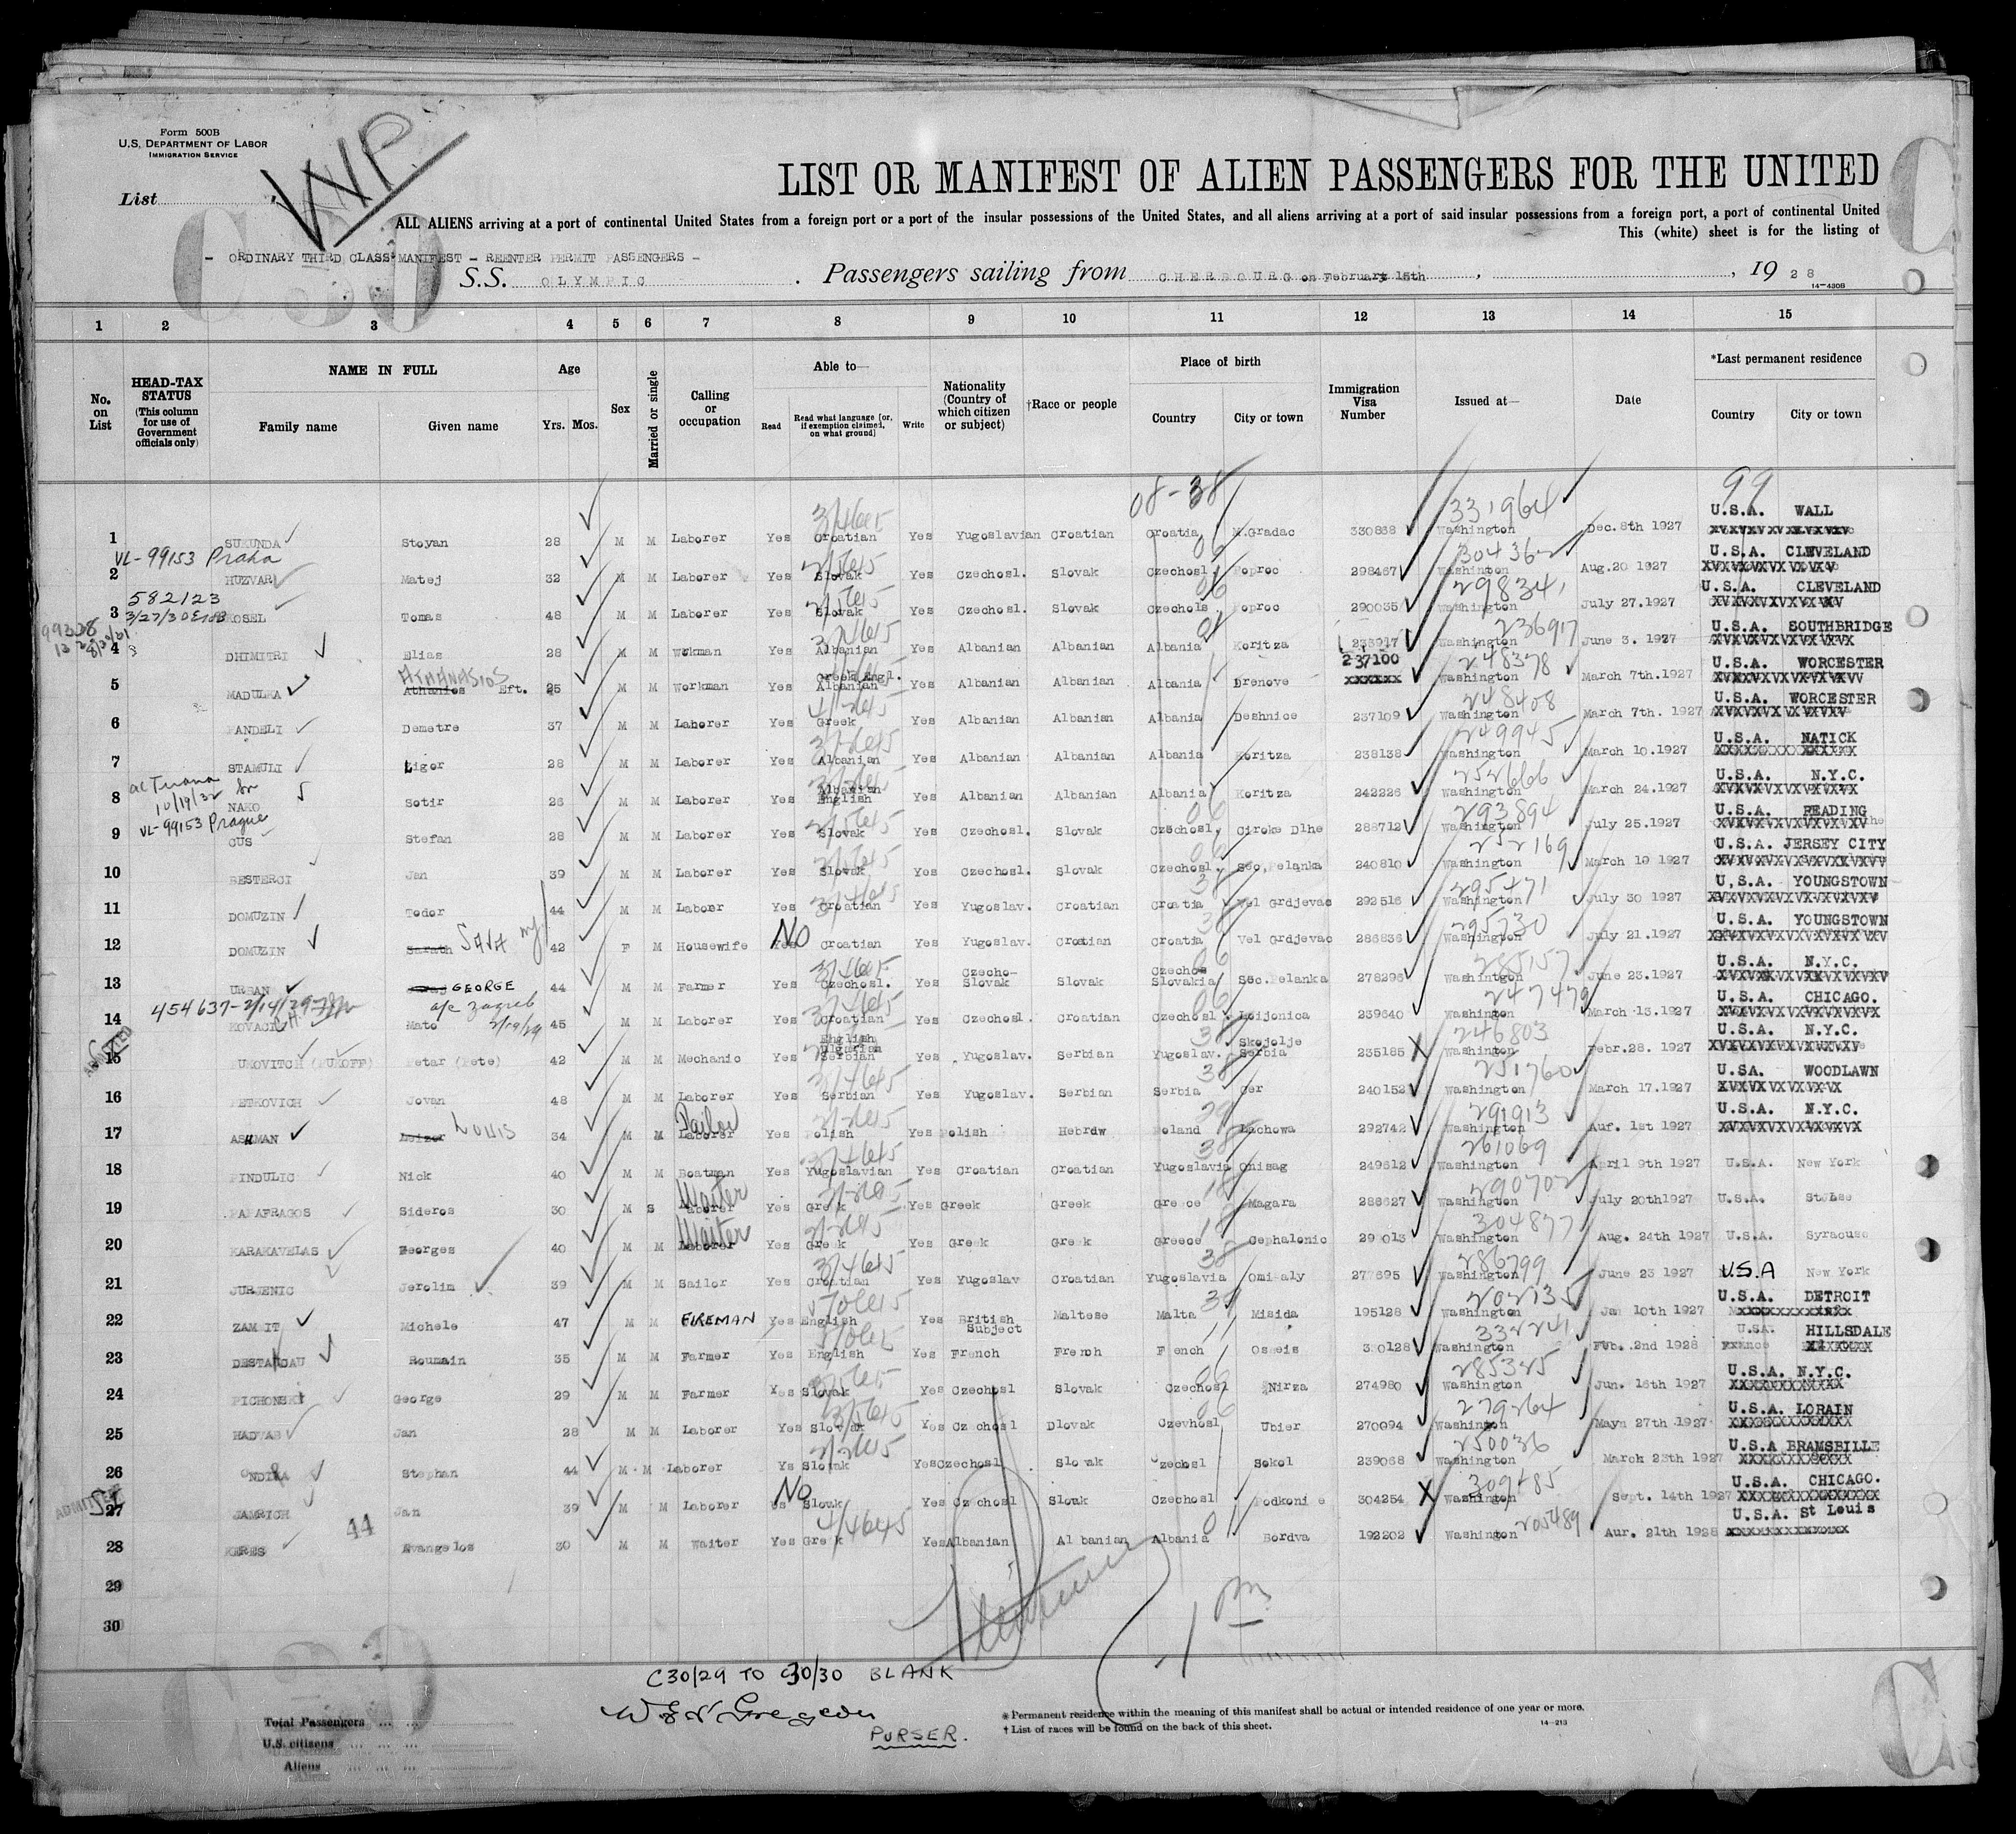 Form 500B
U.S. DEPARTMENT OF LABOR
IMMIGRATION SERVICE
List
LIST OR MANIFEST OF ALIEN PASSENGERS FOR THE UNITED
ALL ALIENS arriving at a port of continental United States from a foreign port or a port of the insular possessions of the United States, and all aliens arriving at a port of said insular possessions from a foreign port, a port of continental United
This (white) sheet is for the listing of
- ORDINARY THIRD CLASS MANIFEST - REENTER PERMIT PASSENGERS -
S.S. OLYMPIC. Passengers sailing from CHERBOURG on February 15th, 1928
14-430B
1 2 3 4 5 6 7 8 9 10 11 12 13 14 15
No. on List
HEAD-TAX STATUS (This column for use of Government officials only)
NAME IN FULL Family name Given name
Age Yrs. Mos.
Sex
Married or single
Calling or occupation
Able to— Read Read what language [or, if exemption claimed, on what ground] Write
Nationality (Country of which citizen or subject)
†Race or people
Place of birth Country City or town
Immigration Visa Number
Issued at—
Date
*Last permanent residence Country City or town
08-38 99
331964
1 SUKUNDA Stoyan 28 M M Laborer Yes Croatian Yes Yugoslavian Croatian Croatia M.Gradac 330868 Washington Dec. 8th 1927 U.S.A. WALL
VL-99153 Praha
2 HUZVAR Matej 32 M M Laborer Yes Slovak Yes Czechosl. Slovak Czechosl. Poproc 298467 Washinton Aug.20 1927 U.S.A. CLEVELAND
582123
3 KOSEL Tomas 48 M M Laborer Yes Slovak Yes Czechosl. Slovak Czechols. Poproc 290035 Washington July 27.1927 U.S.A. CLEVELAND
236917
4 DHIMITRI Elias 28 M M Workman Yes Albanian Yes Albanian Albanian Albania Koritza 236917 Washington June 3. 1927 U.S.A. SOUTHBRIDGE
ATHANASIOS Greek Engl. 237100 248378
5 MADULKA Athanios Eft. 25 M M Workman Yes Albanian Yes Albanian Albanian Albania Drenove xxxxxx Washington March 7th.1927 U.S.A. WORCESTER
248408
6 PANDELI Demetre 37 M M Laborer Yes Greek Yes Albanian Albanian Albania Deshnice 237109 Washington March 7th. 1927 U.S.A. WORCESTER
249945
7 STAMULI Ligor 28 M M Laborer Yes Albanian Yes Albanian Albanian Albania Koritza 238138 Washington March 10.1927 U.S.A. NATICK
10/19/32 Albanian 252666
8 NAKO Sotir 26 M M Laborer Yes English Yes Albanian Albanian Albania Koritza 242226 Washington March 24.1927 U.S.A. N.Y.C.
VL-99153 Prague 293894
9 CUS Stefan 28 M M Laborer Yes Slovak Yes Czechosl. Slovak Czechosl. Ciroke Dlhe 288712 Washington July 25.1927 U.S.A. READING
252169
10 BESTERCI Jan 39 M M Laborer Yes Slovak Yes Czechosl. Slovak Czechosl. Sec.Pelanka 240810 Washington March 19 1927 U.S.A. JERSEY CITY
295471
11 DOMUZIN Todor 44 M M Laborer Yes Croatian Yes Yugoslav. Croatian Croatia Vel Grdjevac 292516 Washington July 30 1927 U.S.A. YOUNGSTOWN
SAVA NO 295730
12 DOMUZIN Sarath 42 F M Housewife Yes Croatian Yes Yugoslav. Croatian Croatia Vel Grdjevac 286836 Washington July 21.1927 U.S.A. YOUNGSTOWN
285157
13 URBAN GEORGE 44 M M Farmer Yes Czechosl. Yes Czecho-Slovak Slovak Czechoslovakia Sec.Pelanka 278296 Washington June 23.1927 U.S.A. N.Y.C.
454637-2/14/29 a/c Zagreb 2/19/29 247479
14 KOVACIC Mato 45 M M Laborer Yes Croatian Yes Czechosl. Croatian Czechosl. Loijonica 239640 Washington March 13.1927 U.S.A. CHICAGO.
ADMITTED English Skojolje 246803
15 PUKOVITCH (PUKOFF) Petar (Pete) 42 M M Mechanic Yes Serbian Yes Yugoslav. Serbian Yugoslav. Serbia 235185 Washington Febr.28. 1927 U.S.A. N.Y.C.
251760
16 PETKOVICH Jovan 48 M M Laborer Yes Serbian Yes Yugoslav. Serbian Serbia Cer 240152 Washington March 17.1927 U.SA. WOODLAWN
LOUIS Tailor 291913
17 ASHMAN Leizor 34 M M Laborer Yes Polish Yes Polish Hebrdw Poland Lachowa 292742 Washington Auf. 1st 1927 U.S.A. N.Y.C.
261069
18 PINDULIC Nick 40 M M Boatman Yes Yugoslavian Yes Croatian Croatian Yugoslavia Onisag 249612 Washington April 9th 1927 U.S.A. New York
Waiter 290702
19 PAPAFRAGOS Sideros 30 M S Laborer Yes Greek Yes Greek Greek Greece Magara 288627 Washington July 20th1927 U.S.A. StLee
Waiter 304877
20 KARAKAVELAS Georges 40 M M Laborer Yes Greek Yes Greek Greek Greece Cephalonic 299013 Washington Aug. 24th 1927 U.S.A. Syracuse
286799
21 JURJENIC Jerolim 39 M M Sailor Yes Croatian Yes Yugoslav Croatian Yugoslavia Omisaly 277695 Washington June 23 1927 U.S.A New York
202135
22 ZAMMIT Michele 47 M M FIREMAN Yes English Yes British Subject Maltese Malta Misida 195128 Washington Jan 10th 1927 U.S.A. DETROIT
332241
23 DESTANDAU Roumain 35 M M Farmer Yes English Yes French French French Osseis 330128 Washington Feb. 2nd 1928 U.SA. HILLSDALE
285325
24 PICHONSKY George 29 M M Farmer Yes Slovak Yes Czechosl Slovak Czechosl Nirza 274980 Washington Jun. 16th 1927 U.S.A. N.Y.C.
279264
25 HADVAB Jan 28 M M Laborer Yes Slovak Yes Czechosl Dlovak Czevhosl Ubier 270094 Washington Mayn 27th 1927 U.S.A. LORAIN
250036
26 ONDIRA Stephan 44 M M Laborer Ys Slovak Yes Czechosl Slovak Czechosl Sokol 239068 Washington March 23th 1927 U.S.A BRAMSBILLE
ADMITTED NO 309485
27 JAMRICH Jan 39 M M Laborer Slovak Yes Czechosl Slovak Czechosl Podkonie 304254 Washington Sept. 14th 1927 U.S.A. CHICAGO.
44 205489
28 KERES Evangelos 30 M M Waiter Yes Greek Yes Albanian Albanian Albania Bordva 192202 Washington Aur. 21th 1928 U.S.A. St Louis
29
30
C30/29 TO C30/30 BLANK
PURSER.
Total Passengers
U.S. citizens
Aliens
* Permanent residence within the meaning of this manifest shall be actual or intended residence of one year or more.
† List of races will be found on the back of this sheet.
14-213